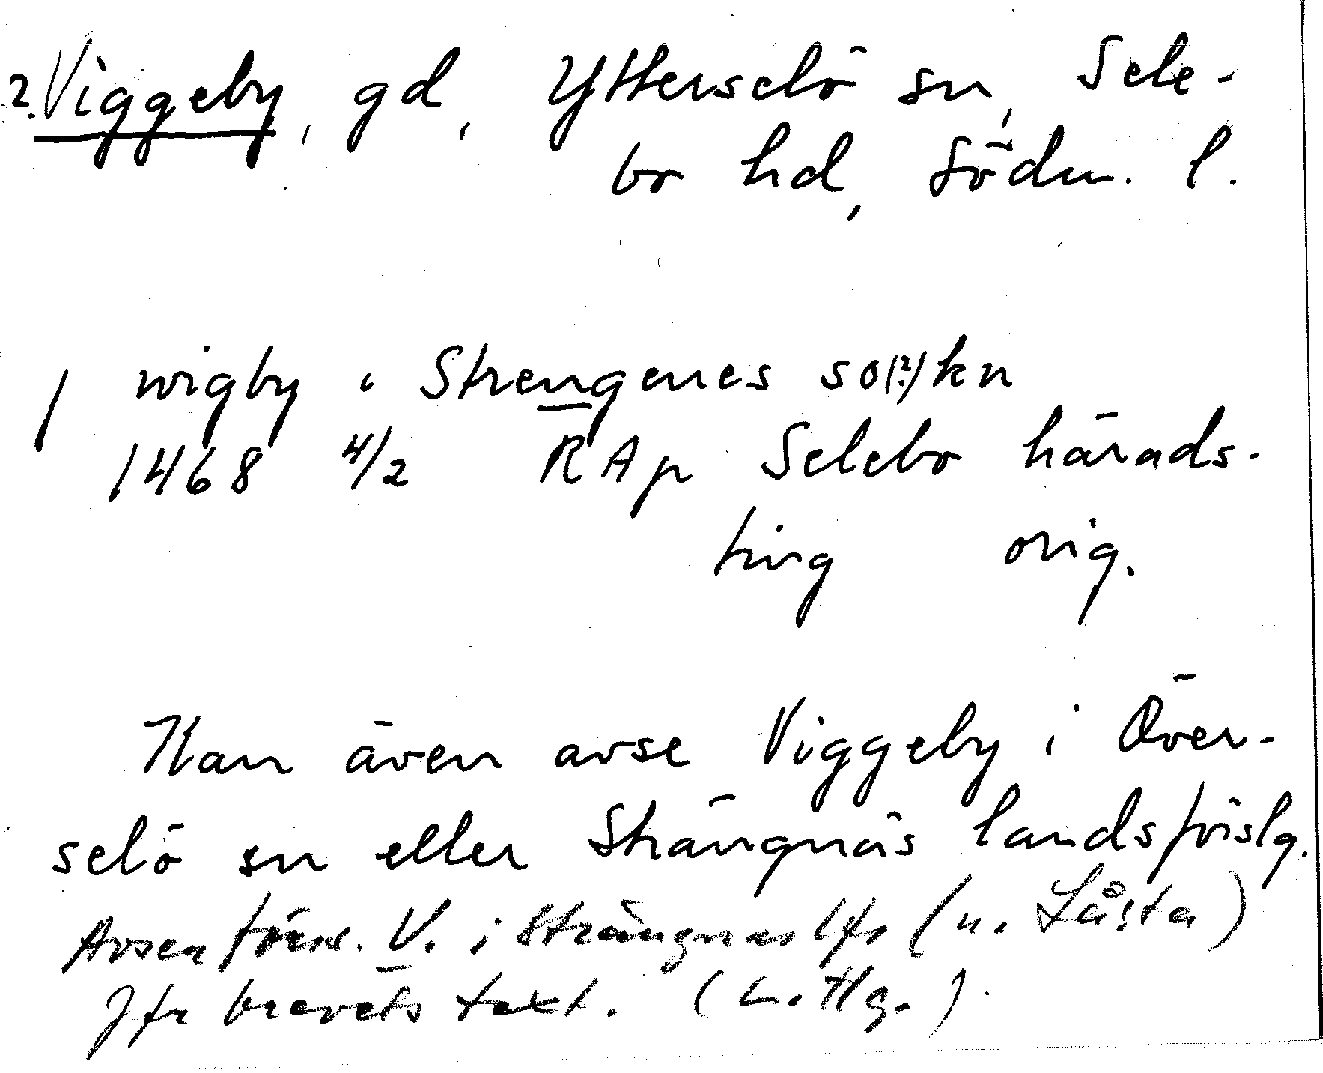 2. Viggeby, gd, Ytterselö sn, Sele-
bo hd, Södm. l.
wigby i Strengenes so(?)kn
1468 4/2 RAp Selebo härads-
ting orig.
Kan även avse Viggeby i Över-
selö sn eller Strängnäs landsförslg.
Avser förm. V. i Strängnäs lfs (u. Låsta)
Jfr brevets text. (L. Hg.).